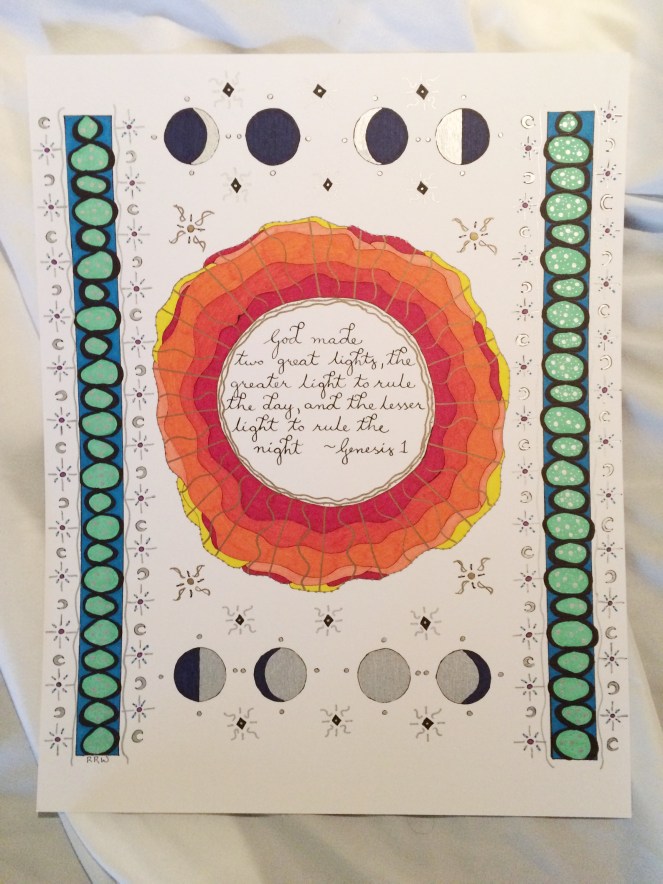 God made
two great lights, the
greater light to rule
the day, and the lesser
light to rule the
night ~Genesis 1
RRW